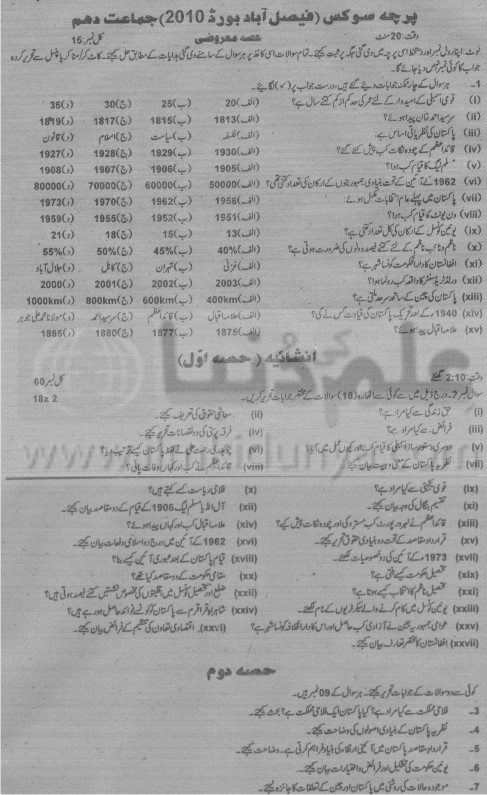 پرچہ سوکس (فیصل آباد بورڈ 2010) جماعت دہم
وقت: 20 منٹ حصہ معروضی کل نمبر: 15
1- ہر سوال کے چار ممکنہ جوابات دیئے گئے ہیں، درست جواب پر (✓) لگایئے۔
(i) قومی اسمبلی کے امیدوار کے لئے عمر کی حد کم از کم کتنے سال ہے؟ (الف) 20 (ب) 25 (ج) 30 (د) 35
(ii) سرسید احمد خان پیدا ہوئے: (الف) 1813 (ب) 1815 (ج) 1817 (د) 1819
(iii) پاکستان کی نظریاتی اساس ہے: (الف) فلسفہ (ب) سیاست (ج) اسلام (د) قانون
(iv) قائداعظم کے چودہ نکات کب پیش کئے گئے؟ (الف) 1930 (ب) 1929 (ج) 1928 (د) 1927
(v) مسلم لیگ کا قیام کب ہوا؟ (الف) 1905 (ب) 1906 (ج) 1907 (د) 1908
(vi) 1962 کے آئین کے تحت بنیادی جمہوریتوں کے ارکان کی تعداد کتنی تھی؟ (الف) 50000 (ب) 60000 (ج) 70000 (د) 80000
(vii) پاکستان میں پہلے عام انتخابات مکمل ہوئے: (الف) 1956 (ب) 1962 (ج) 1970 (د) 1973
(viii) ون یونٹ کا قیام کب ہوا؟ (الف) 1951 (ب) 1952 (ج) 1955 (د) 1959
(ix) یونین کونسل کے ارکان کی کل تعداد کتنی ہے؟ (الف) 13 (ب) 15 (ج) 18 (د) 21
(x) ناظم و نائب ناظم کے لئے کتنے فیصد ووٹوں کی ضرورت ہوتی ہے؟ (الف) 40% (ب) 45% (ج) 50% (د) 55%
(xi) افغانستان کا دارالحکومت کونسا شہر ہے؟ (الف) غزنی (ب) تہران (ج) کابل (د) جلال آباد
(xii) ورلڈ ٹریڈ سنٹر کا واقعہ کب رونما ہوا؟ (الف) 2003 (ب) 2002 (ج) 2001 (د) 2000
(xiii) پاکستان کی چین کے ساتھ سرحد ملتی ہے؟ (الف) 400km (ب) 600km (ج) 800km (د) 1000km
(xiv) 1940 کے بعد تحریک پاکستان کی قیادت کس نے کی؟ (الف) علامہ اقبال (ب) قائداعظم (ج) سرسید احمد (د) مولانا محمد علی جوہر
(xv) علامہ اقبال پیدا ہوئے؟ (الف) 1875 (ب) 1877 (ج) 1880 (د) 1885
انشائیہ (حصہ اوّل)
وقت: 2:10 گھنٹے کل نمبر 60
سوال نمبر 2- درج ذیل میں سے کوئی سے اٹھارہ (18) سوالات کے مختصر جوابات تحریر کریں۔ 18x 2
(i) حق زندگی سے کیا مراد ہے؟ (ii) معاشی حقوق کی تعریف کیجئے۔
(iii) فرائض سے کیا مراد ہے؟ (iv) فرقہ پرستی کے دو نقصانات تحریر کیجئے۔
(v) دوسری دستور ساز اسمبلی کا قیام کب اور کیوں عمل میں آیا؟ (vi) چوہدری رحمت علی نے لفظ پاکستان کیسے ترتیب دیا؟
(vii) نظریہ پاکستان کے معنی و اہمیت بیان کیجئے۔ (viii) قائداعظم نے کب اور کہاں وفات پائی؟
(ix) قومی یکجہتی سے کیا مراد ہے؟ (x) فلاحی ریاست کسے کہتے ہیں؟
(xi) تقسیم بنگال کی وجہ بیان کیجئے۔ (xii) آل انڈیا مسلم لیگ 1906 کے قیام کے دو مقاصد بیان کیجئے۔
(xiii) قائداعظم نے نہرو رپورٹ کب مسترد کی اور چودہ نکات پیش کیے؟ (xiv) علامہ اقبال کب اور کہاں پیدا ہوئے؟
(xv) قرارداد مقاصد کے تحت دو بنیادی حقوق تحریر کیجئے۔ (xvi) 1962 کے آئین میں درج دو اسلامی دفعات بیان کیجئے۔
(xvii) 1973 کے آئین کی دو خصوصیات لکھئے۔ (xviii) قیام پاکستان کے بعد عبوری آئین کیسے بنا؟
(xix) تحصیل حکومت کیسے بنتی ہے؟ (xx) مقامی حکومت کے دو مقاصد کیا تھے؟
(xxi) تحصیل ناظم کا انتخاب کیسے ہوتا ہے؟ (xxii) ضلع اور تحصیل کونسل میں اقلیتوں کی مخصوص نشستیں کتنے فیصد ہوتی ہیں؟
(xxiii) یونین کونسل میں کام کرنے والے سیکرٹریوں کے نام لکھئے۔ (xxiv) شاہراہ قراقرم سے پاکستان کو کونسے فوائد حاصل ہو رہے ہیں؟
(xxv) عوامی جمہوریہ چین نے آزادی کب حاصل کی اور اس کا دارالخلافہ کونسا شہر ہے؟ (xxvi) اقتصادی تعاون کی تنظیم کے فرائض بیان کیجئے۔
(xxvii) افغانستان کا مختصر تعارف بیان کیجئے۔
حصہ دوم
کوئی سے دو سوالات کے جوابات تحریر کیجئے۔ ہر سوال کے 09 نمبر ہیں۔
3- فلاحی مملکت سے کیا مراد ہے؟ کیا پاکستان ایک فلاحی مملکت ہے؟ بحث کیجئے۔
4- نظریہ پاکستان کے بنیادی اصولوں کی وضاحت کیجئے۔
5- قرارداد مقاصد پاکستان میں آئینی ارتقاء کی بنیاد فراہم کرتی ہے۔ وضاحت کیجئے۔
6- یونین حکومت کی تشکیل اور فرائض و اختیارات بیان کیجئے۔
7- موجودہ حالات کی روشنی میں پاکستان اور چین کے تعلقات کا جائزہ لیجئے۔